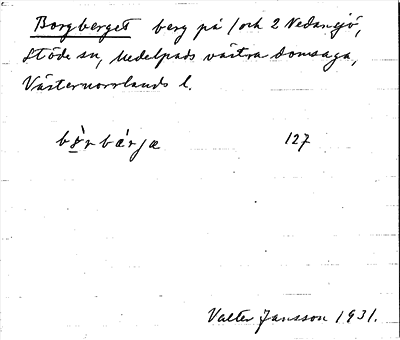 Borgberget berg på 1 och 2 Nedansjö,
Stöde sn, Medelpads västra domsaga,
Västernorrlands l.
bo̱̊̀rbärjæ 127
Valter Jansson 1931.